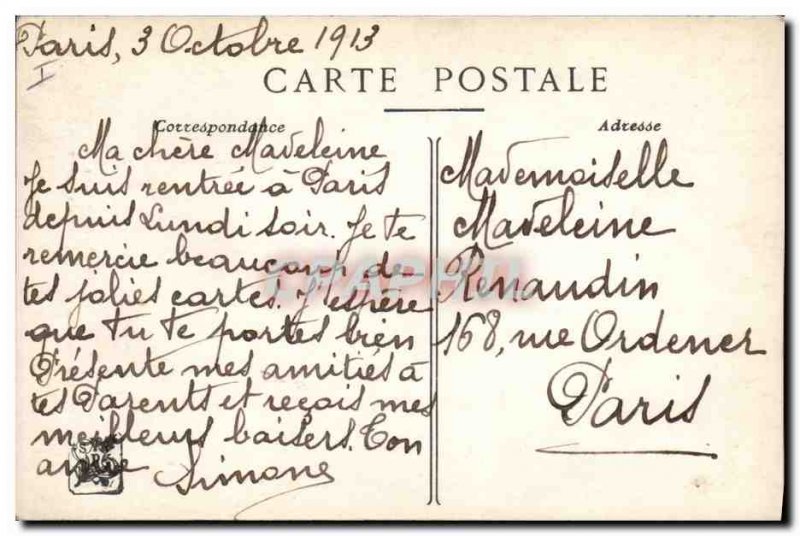 Paris, 3 Octobre 1913
I
CARTE POSTALE
Correspondance
Ma chère Madeleine
Je suis rentrée à Paris
depuis Lundi soir. Je te
remercie beaucoup de
tes jolies cartes. J'espère
que tu te portes bien
Présente mes amitiés à
tes Parents et reçois mes
meilleurs baisers. Ton
amie Simone
Adresse
Mademoiselle
Madeleine
Renaudin
168, rue Ordener
Paris